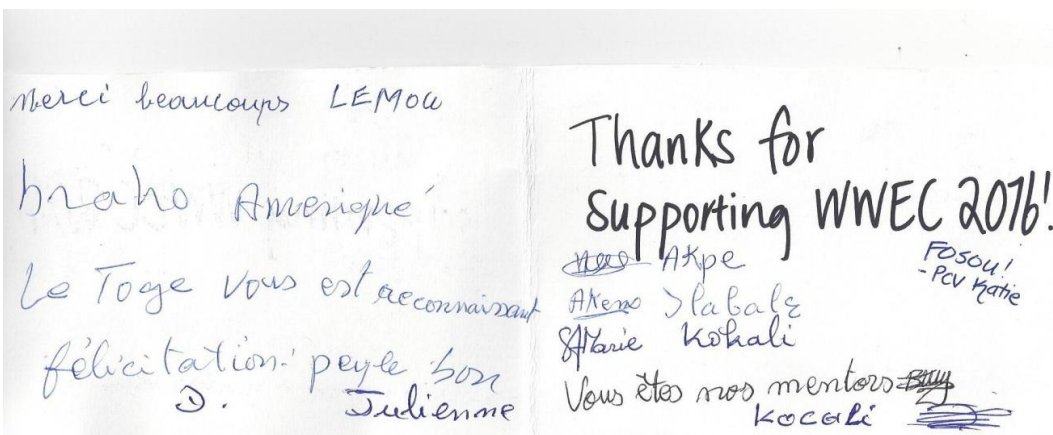 Merci beaucoups LEMOU
braho Amerique
Le Toge vous est reconnaissant
félicitation peyle bon
D. Julienne
Thanks for
Supporting WWEC 2016!
Akpe
FOSOU!
- PCV Katie
Marie Kokali
Vous êtes nos mentors
Kocoli